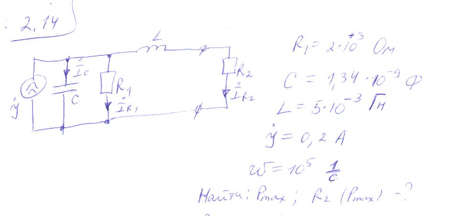 2,14
L
İ_C
C
R₁
İ_R₁
R₂
İ_R₂
J̇
R₁ = 2·10³ Ом
C = 1,34·10⁻⁹ Ф
L = 5·10⁻³ Гн
J̇ = 0,2 А
ω = 10⁵ 1/с
Найти: Pmax; R₂ (Pmax) - ?